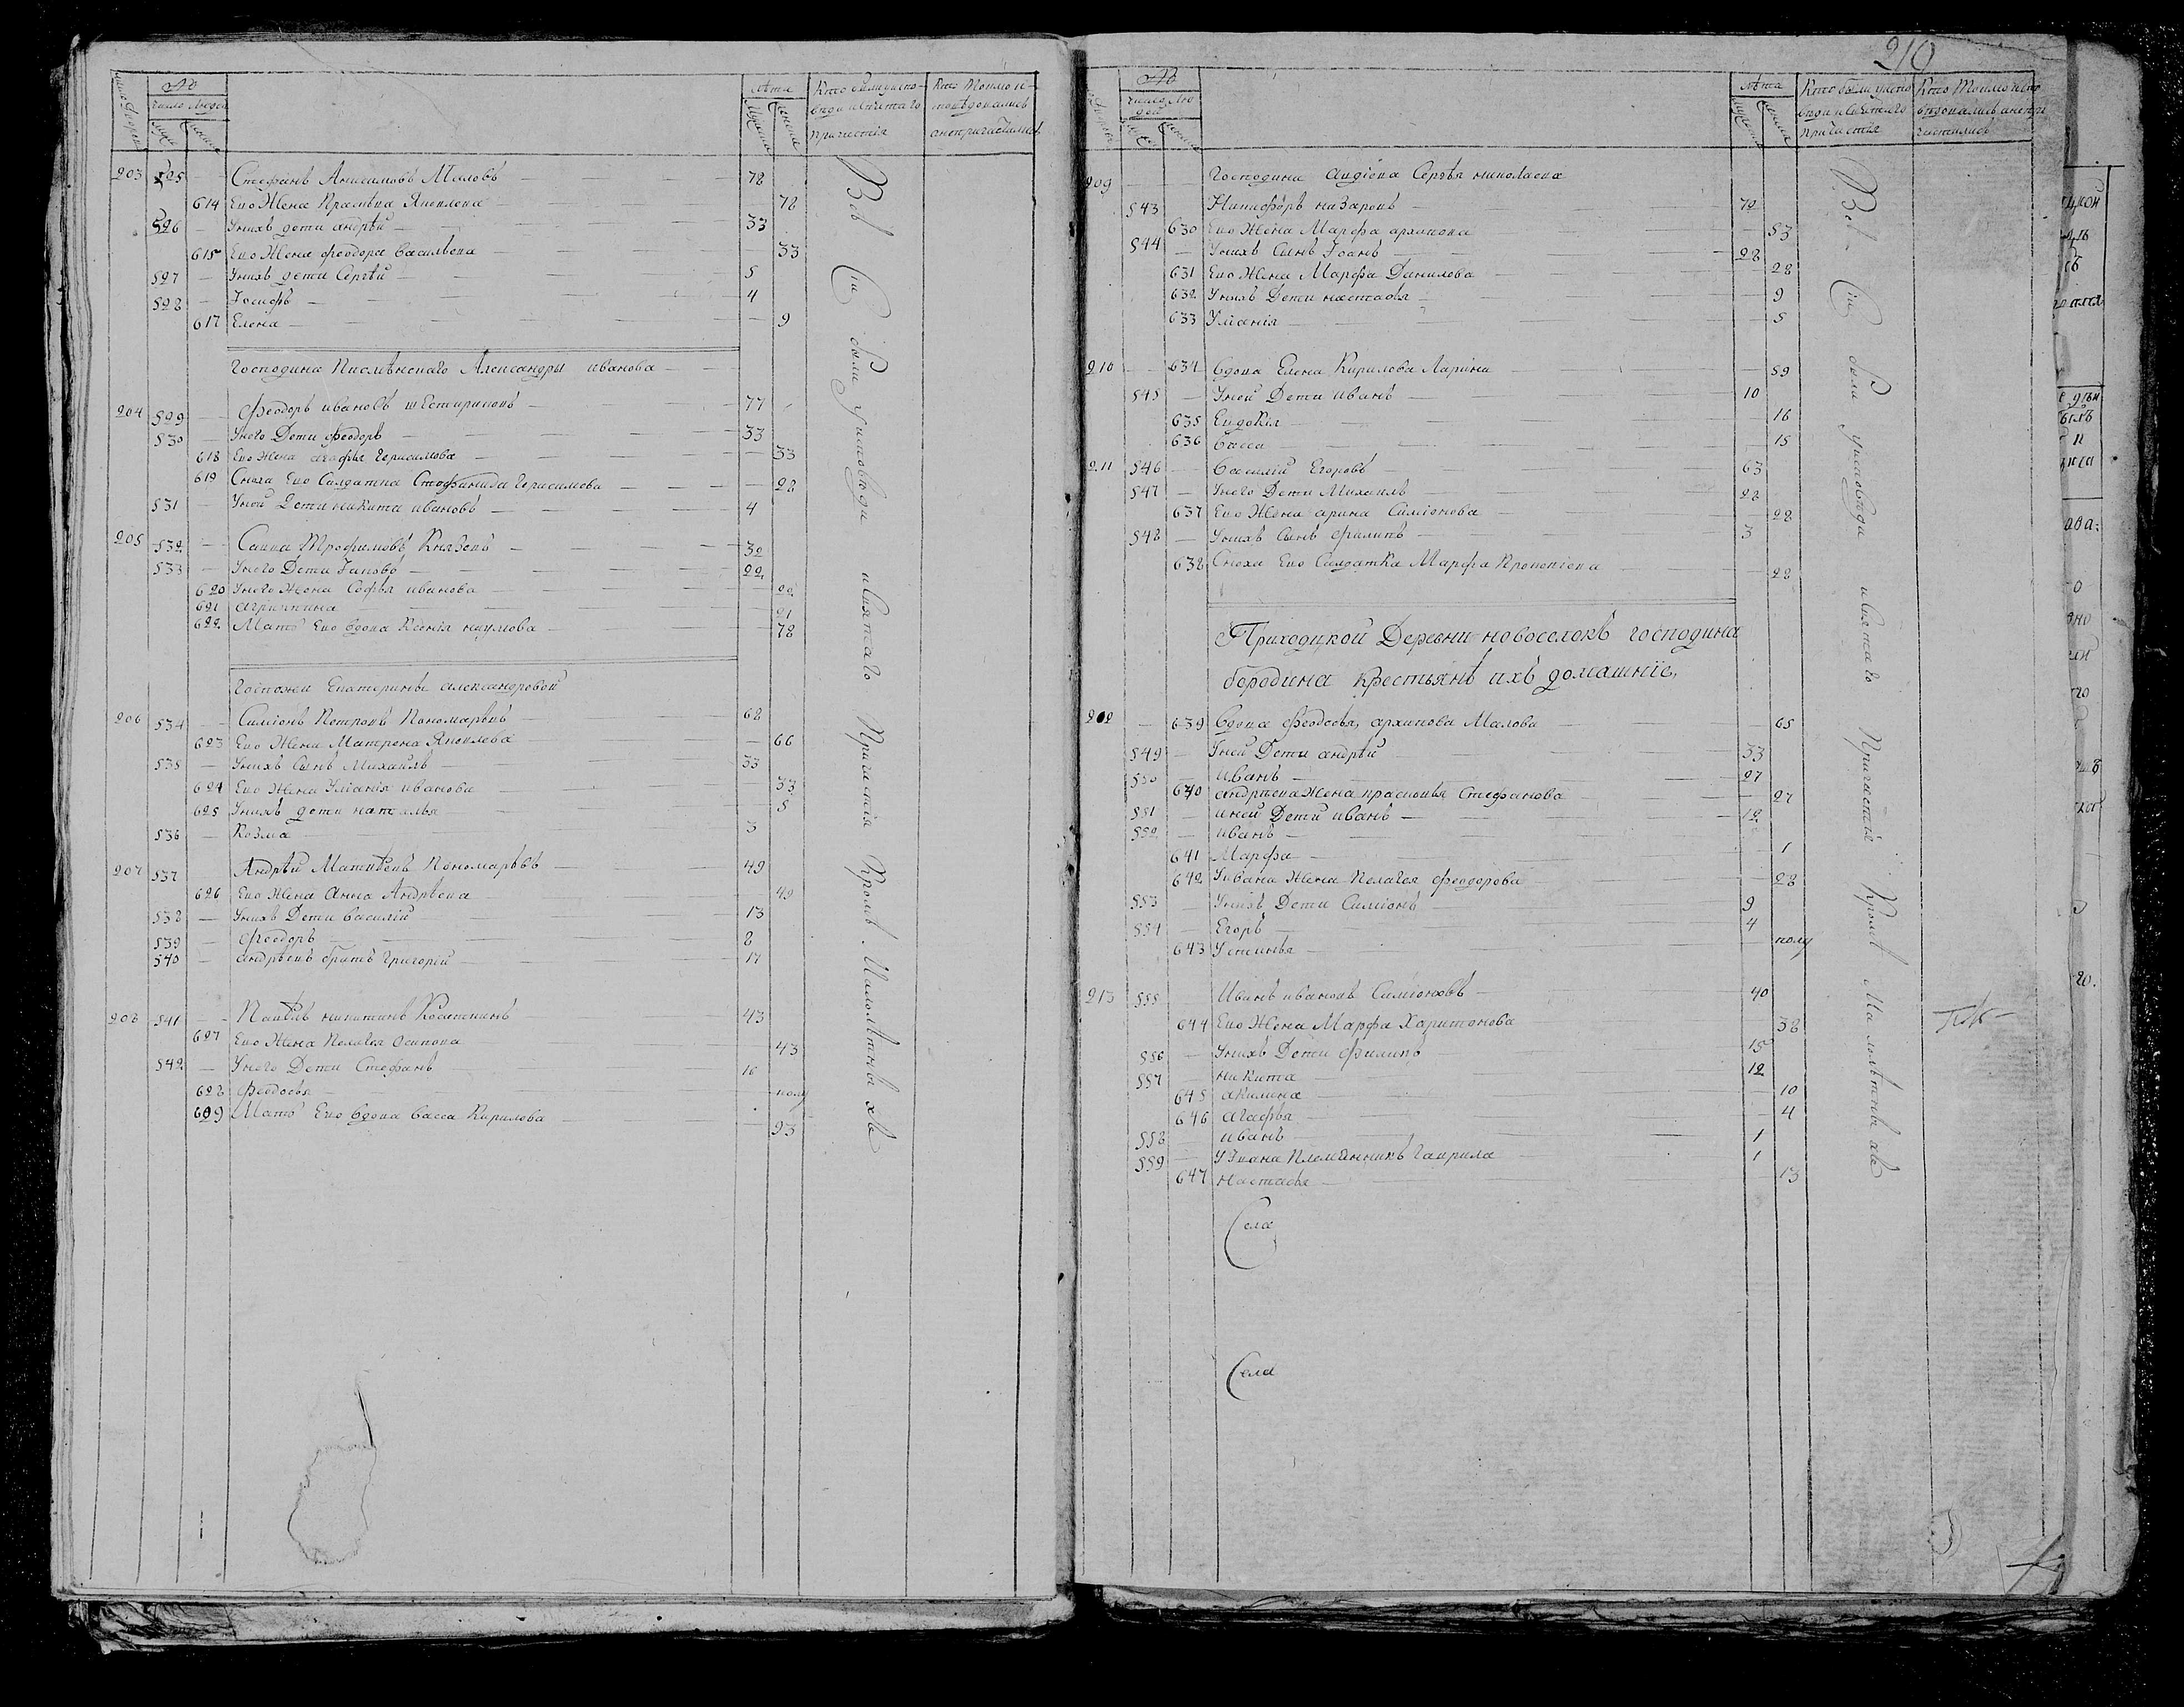 №
число людей
мужс
женск
лѣта
Мужеска
Женска
Кто были уиспо-
вѣди исвятаго
причастія
Кто токмо и-
сповѣдовались
анепричастились
203 525 Стефанъ Маловъ 78
614 Его Жена Яковлева 78
526 Унихъ дети андрѣй 33
615 Его Жена феодора васильева 33
527 Унихъ дети Сергѣй 5
528 Іосифъ 4
617 Елена 9
господина Александры иванова
204 529 Феодоръ ивановъ 77
530 Унего Дети феодоръ 33
618 Его Жена агафья Герасимова 33
619 Сноха Его Салдатка Герасимова 28
531 Уней Дети никита ивановъ 4
205 532 Савва Трофимовъ Князевъ 32
533 Унего Дети Іаковъ 22
620 Унего Жена Софья иванова
621 агрипина 21
622 Мать Его вдова Ксенія наумова 78
Госпожи Екатерины александровой
206 534 Симіонъ Петровъ Пономаревъ 68
623 Его Жена Матрена Яковлева 66
535 Унихъ Сынъ Михаилъ 33
624 Его Жена Уліанія иванова 33
625 Унихъ дети наталья 5
536 Козма 3
207 537 Андрѣй Матвѣевъ Пономаревъ 49
626 Его Жена Анна Андрѣева 49
538 Унихъ Дети василій 13
539 Феодоръ 8
540 андрѣевъ братъ Григорей 17
208 541 Павелъ никитинъ 43
627 Его Жена Пелагея осипова 43
542 Унего Дети Стефанъ 16
628 Феодосья полу
629 Мать Его вдова васса Кирилова 93
Всѣ Сіи были уисповѣди исвятаго Причастія Кромѣ Малолѣтныхъ
210
№
число лю
дей
лѣта
Кто были уиспо
вѣди исвятаго
причастія
Кто токмо испо
вѣдовались анепри
частились
209 Господина Сергѣя николаева
543 Никифоръ назаровъ 72
630 Его Жена Марфа архипова 53
544 Унихъ Сынъ Іоанъ 28
631 Его Жена Марфа Данилова 28
632 Унихъ Дети настасья 9
633 Уліанія 5
210 634 вдова Елена Кирилова Ларина 59
545 Уней Дети иванъ 10
635 Евдокія 16
636 васса 15
211 546 василій Егоровъ 63
547 Унего Дети Михаилъ 28
637 Его Жена арина Симіонова 28
548 Унихъ Сынъ Филипъ 3
638 Сноха Его Салдатка Марфа Прокопіева 28
Приходцкой Деревни новоселокъ господина
бородина крестьянѣ ихъ домашніе,
212 639 вдова Феодосья, архипова Малова 65
549 Уней Дети андрѣй 33
550 иванъ 27
640 андрѣева Жена прасковья Стефанова 27
551 иней Дети иванъ 12
552 иванъ
641 Марфа 1
642 Уивана Жена Пелагея Феодорова 28
553 Унихъ Дети Симіонъ 9
554 Егоръ 4
643 Устинья полу
213 555 Иванъ ивановъ 40
644 Его Жена Марфа Харитонова 38
556 Унихъ Дети Филипъ 15
557 никита 12
645 акилина 10
646 агафья 4
558 иванъ 1
559 УИвана Племянникъ Гаврила 1
647 настасья 13
Всѣ Сіи были уисповѣди исвятаго Причастія Кромѣ Малолѣтныхъ
Села
Села